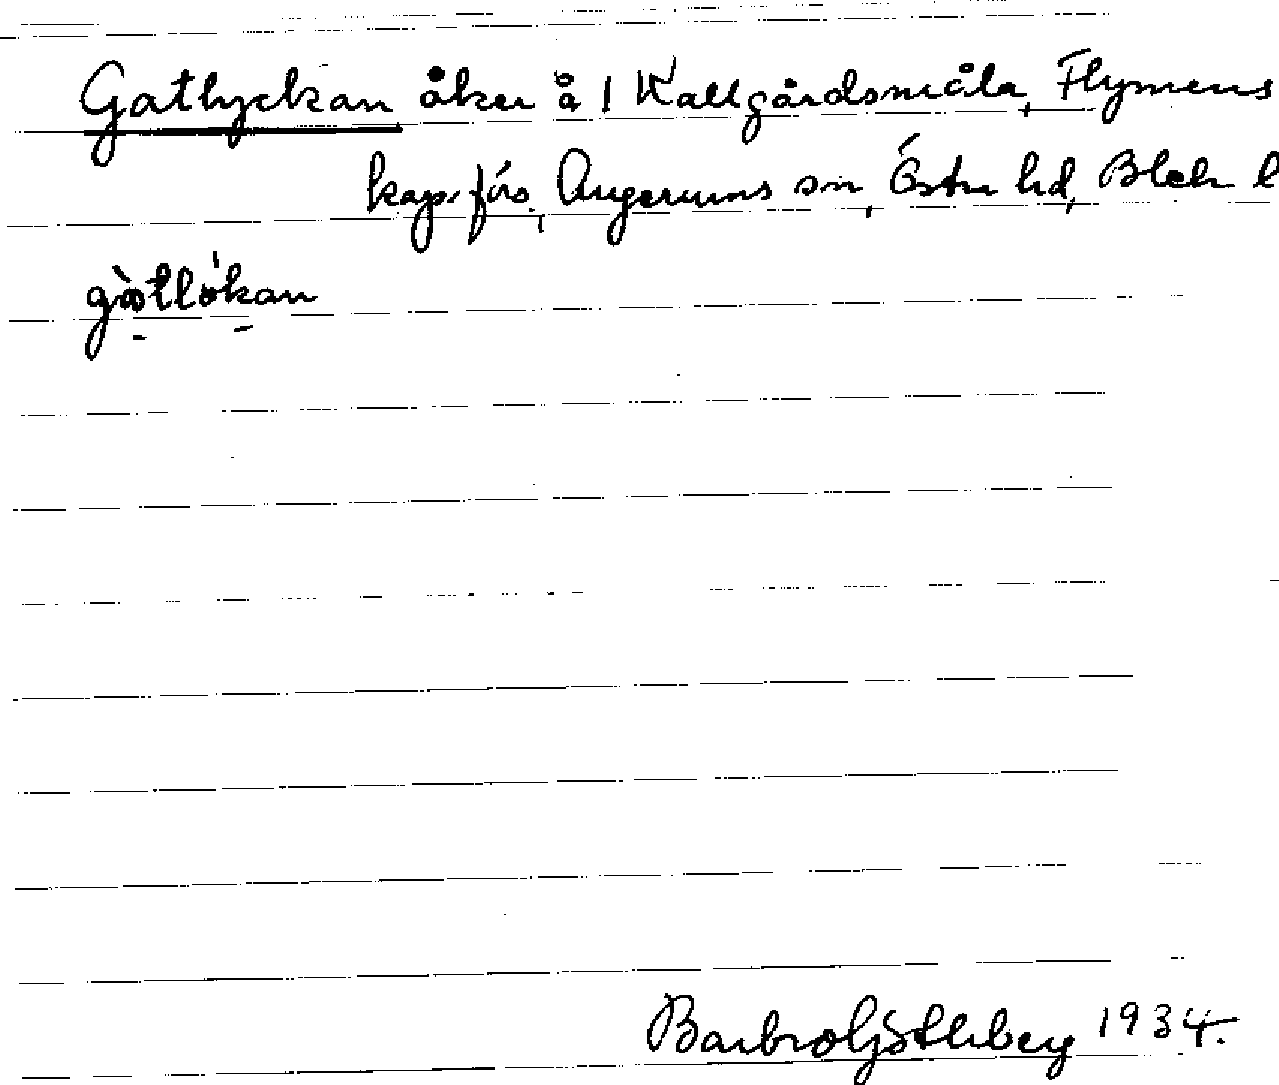 Gatlyckan åker å 1 Kallgårdsmåla, Flymens
kap. förs., Augerums sn, Östra hd, Blek l
gàtlökan
Barbro 1934.